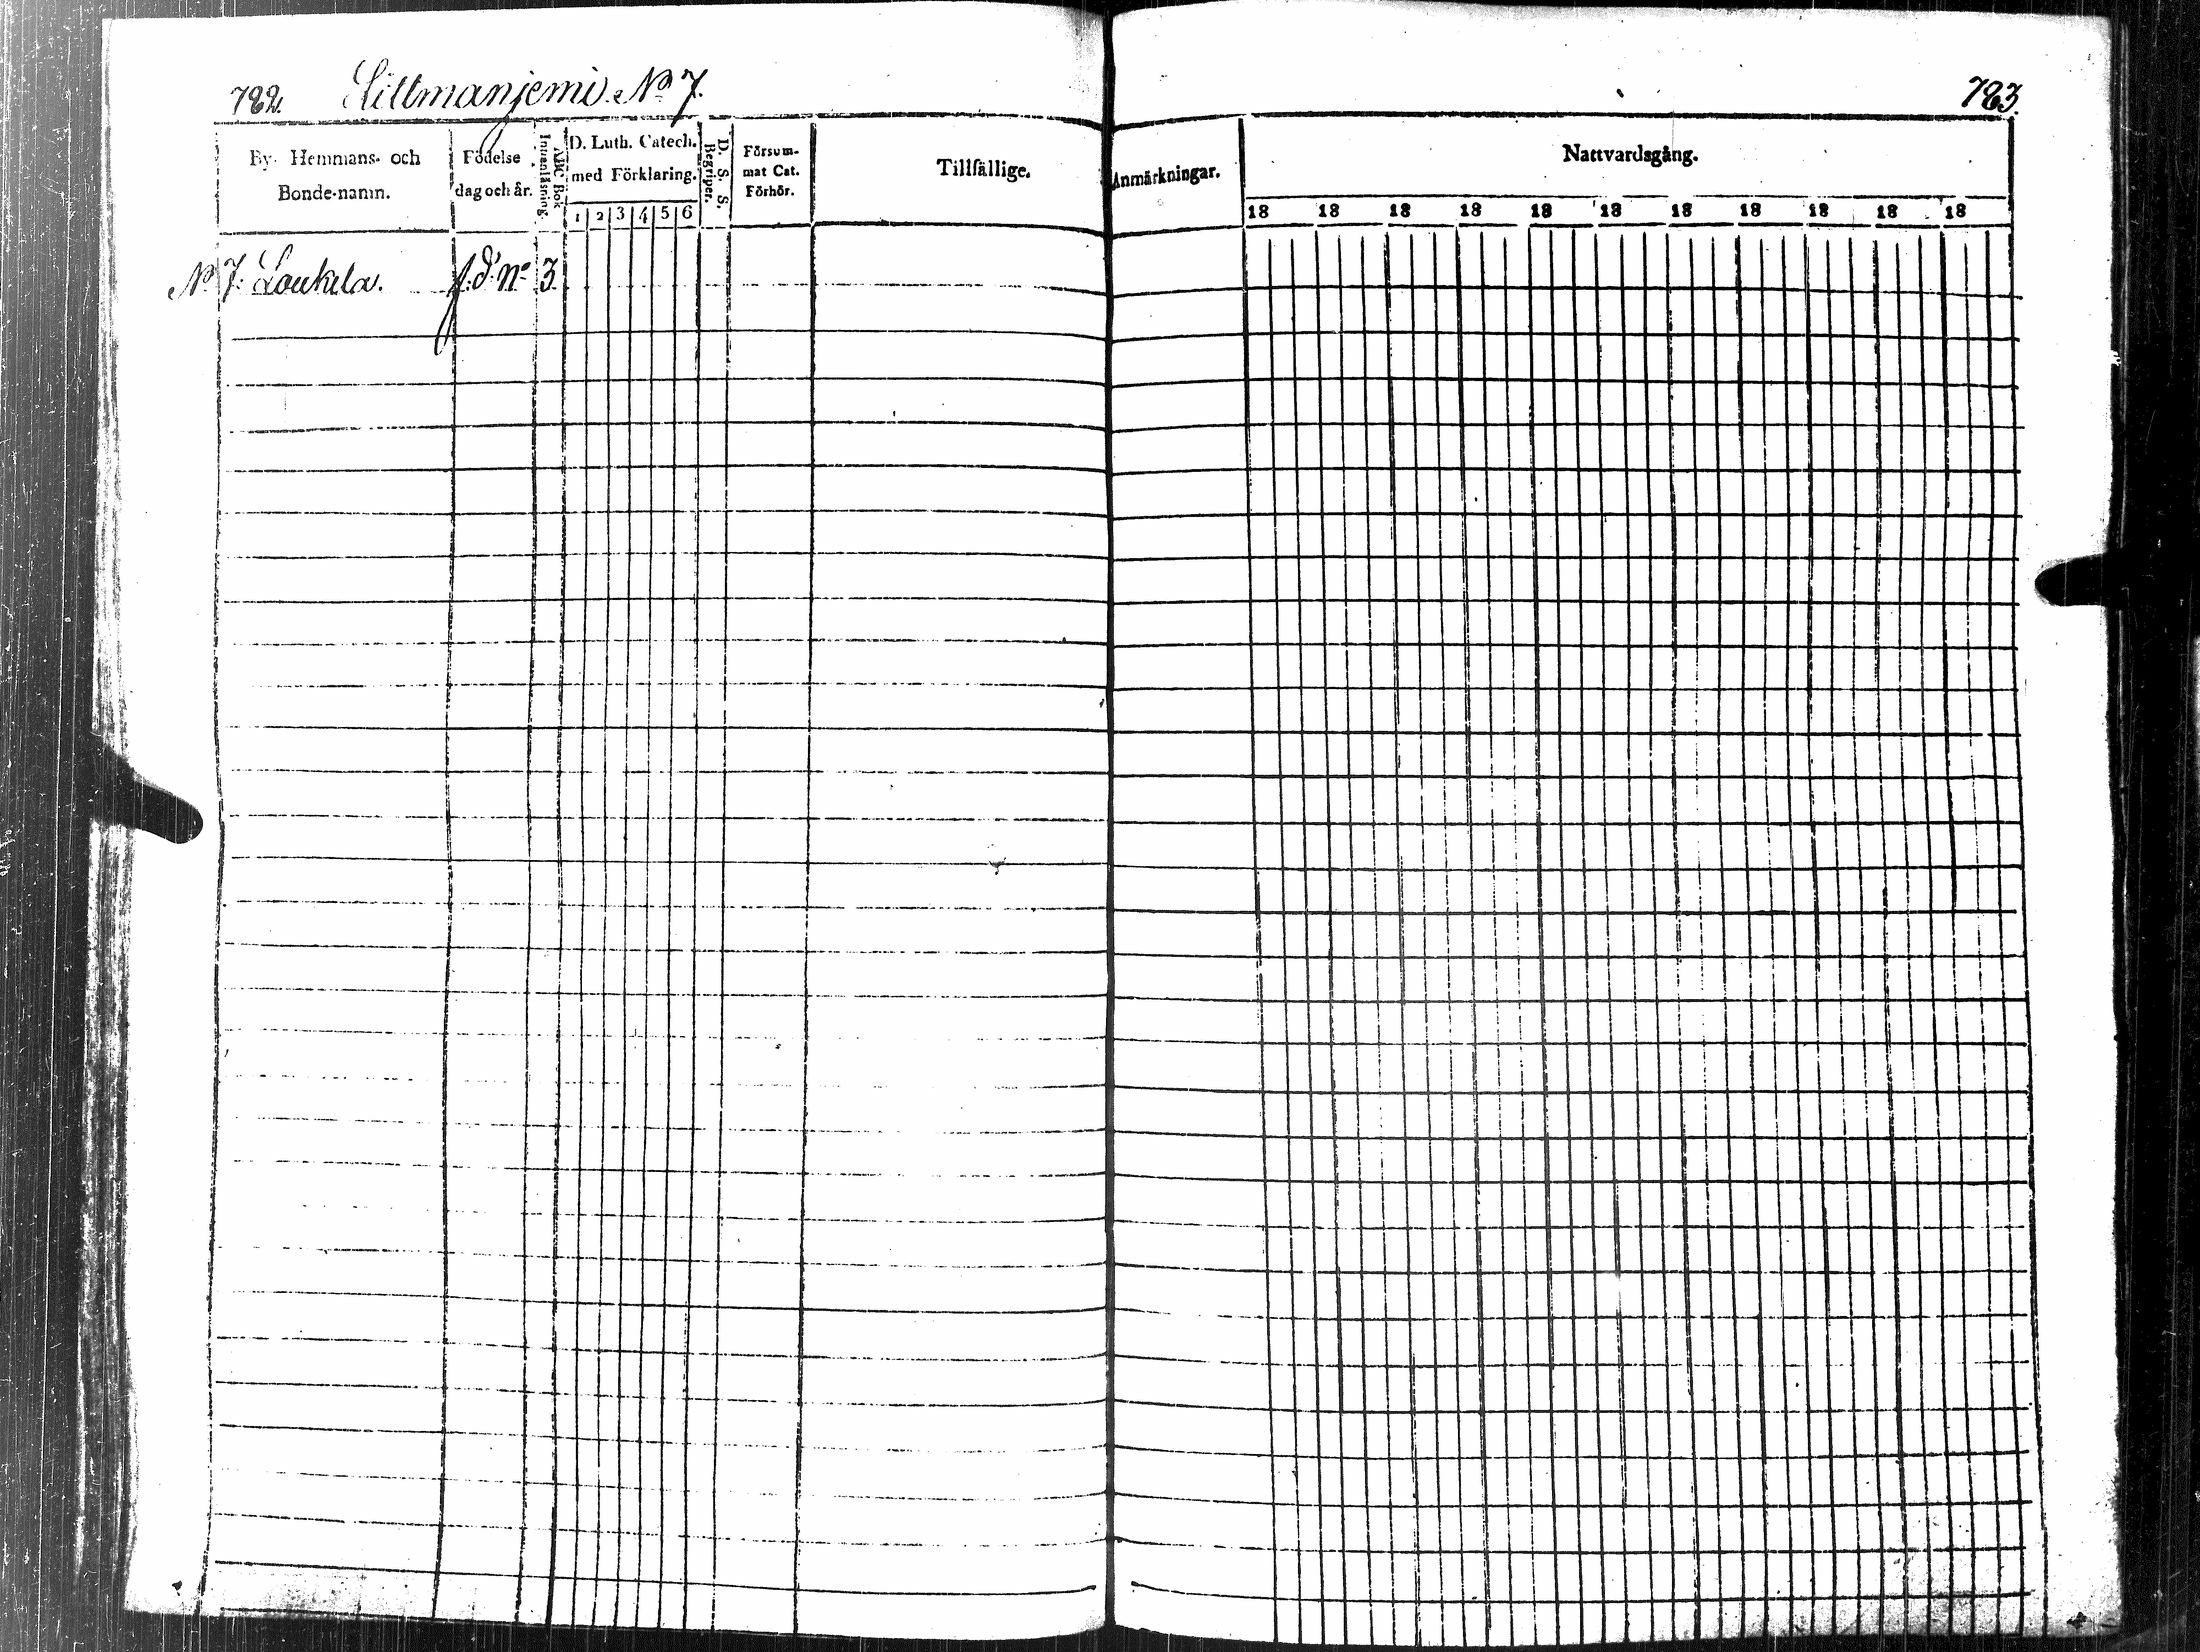 782. Littmanjemi. No 7.
By- Hemmans- och Bonde-namn.
Födelse dag och år.
ABC Bok Innanläsning.
D. Luth. Catech. med Förklaring.
1 2 3 4 5 6
D. S. S. Begriper.
Försum-
mat Cat.
Förhör.
Tillfällige.
No 7: Loukila. f. d. no 3.
783.
Anmärkningar.
Nattvardsgång.
18 18 18 18 18 18 18 18 18 18 18